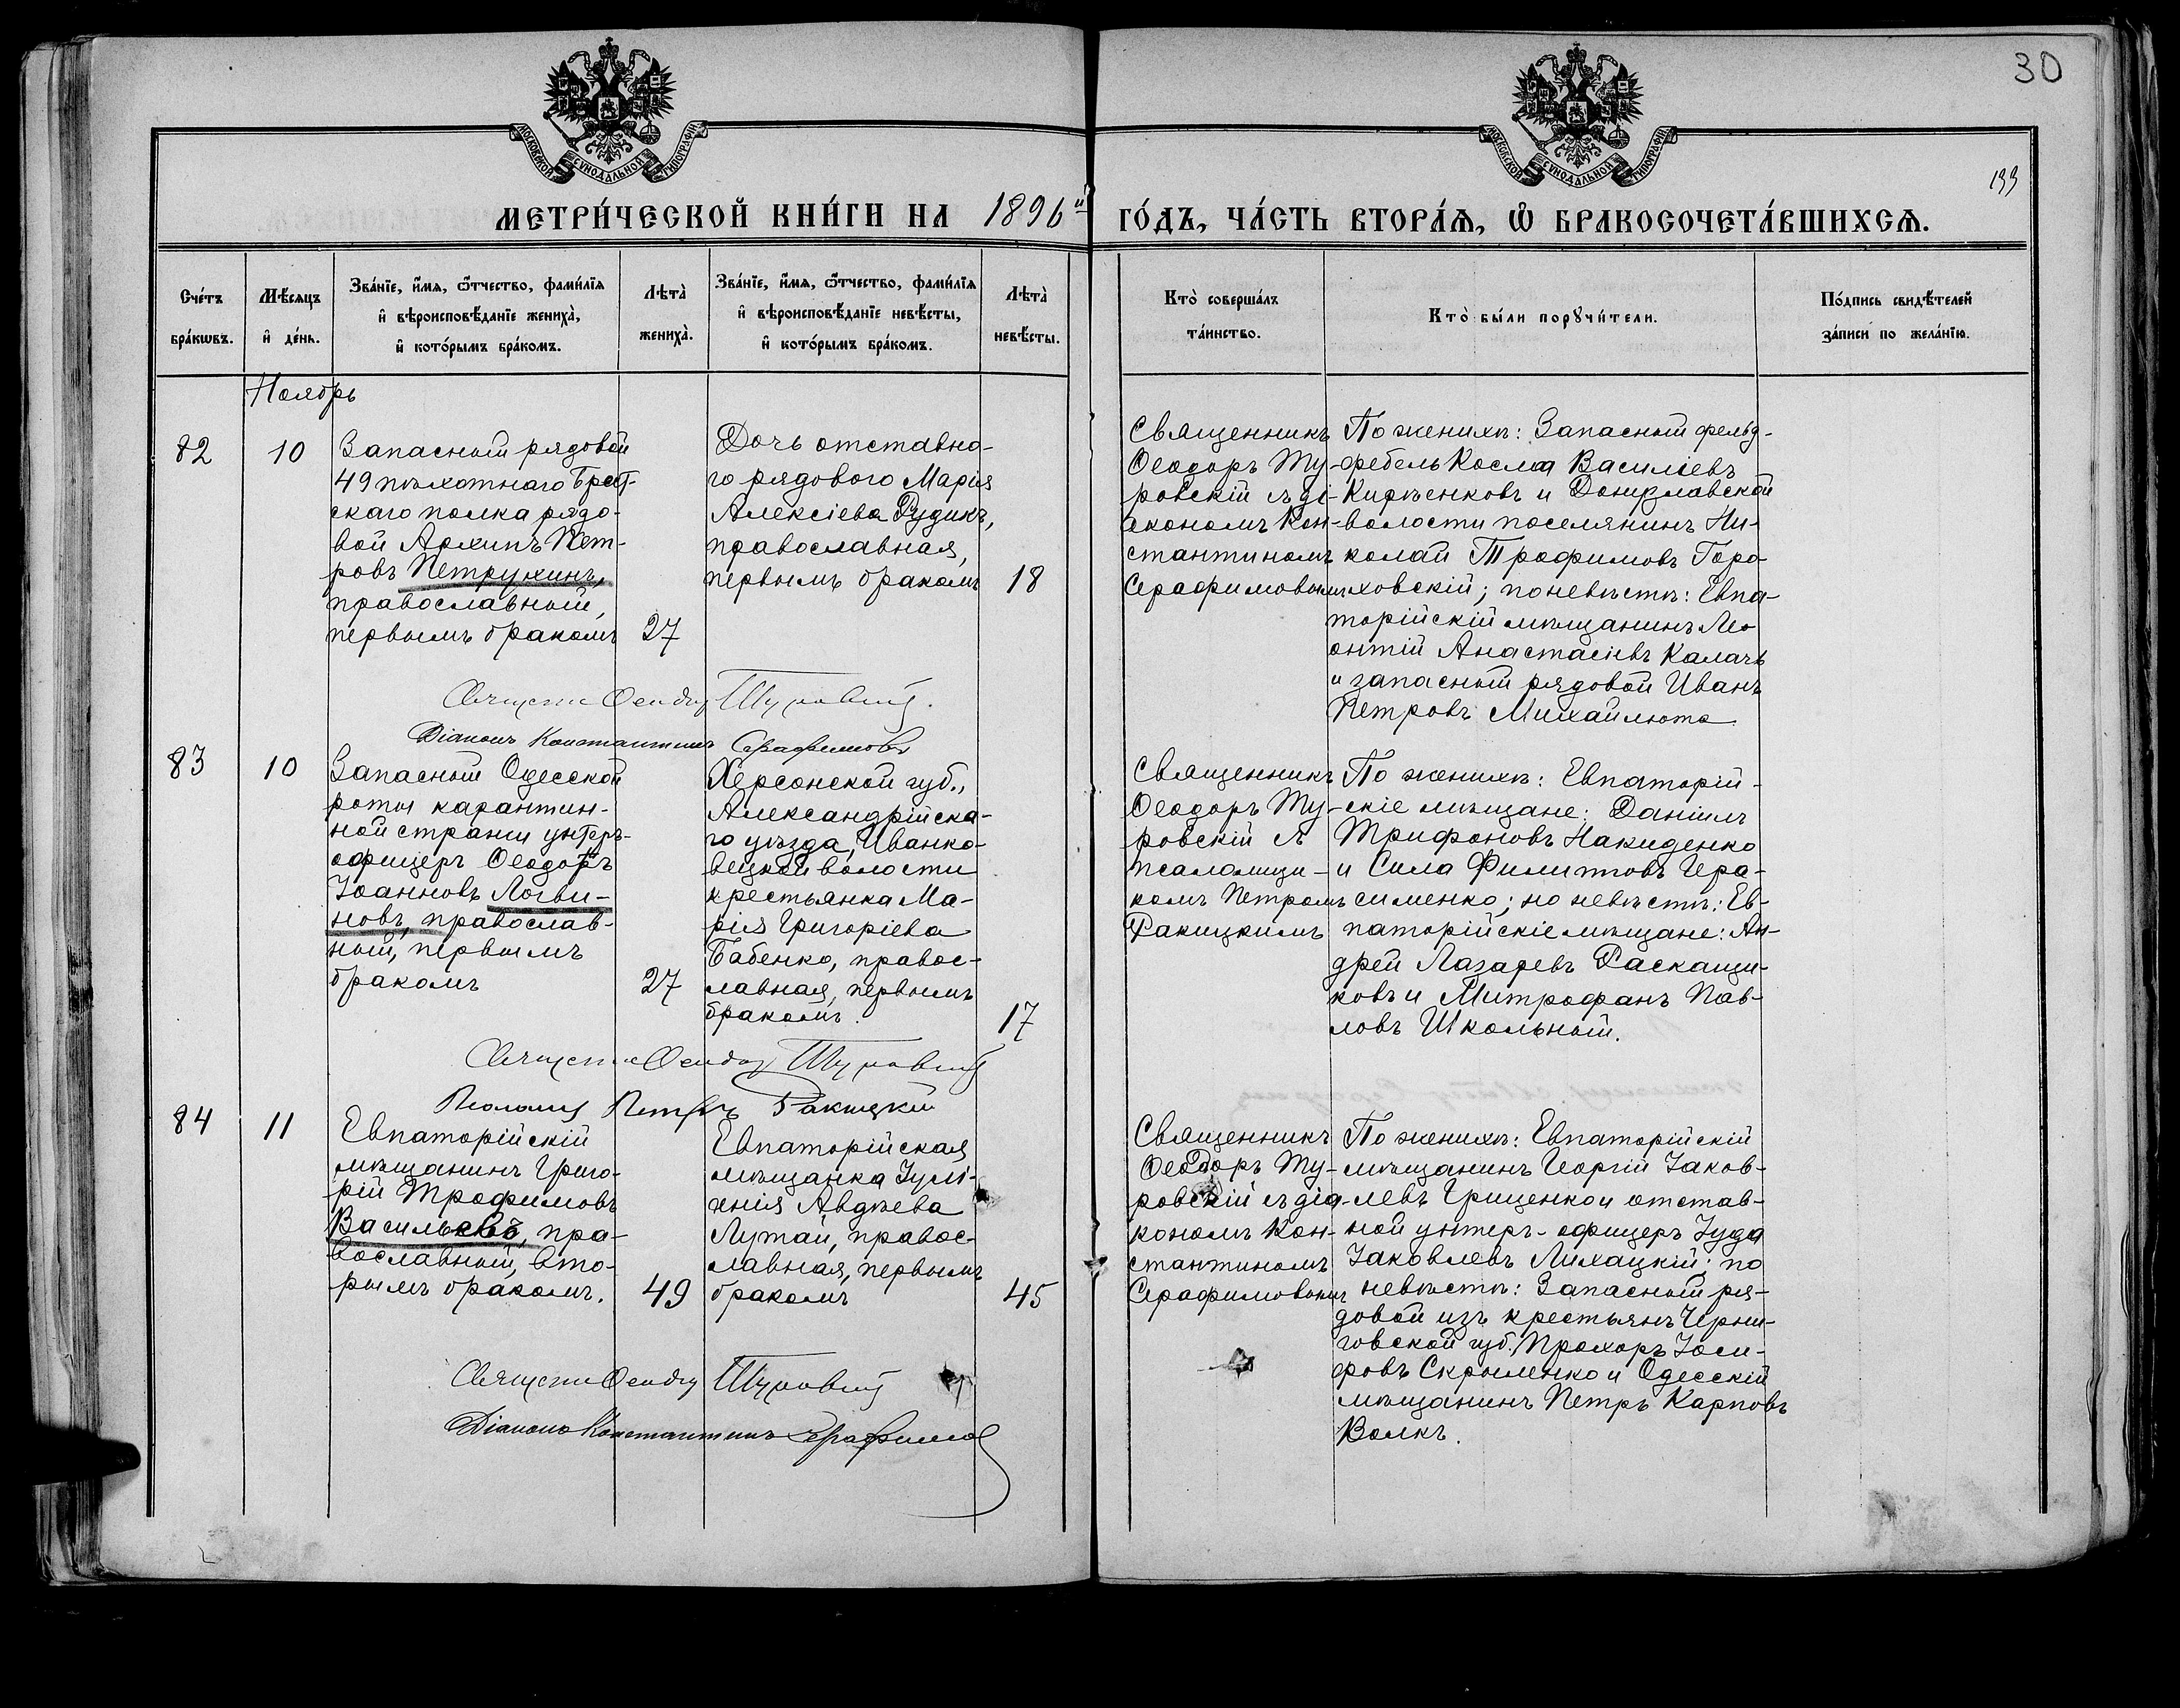 30
199
МОСКОВСКОЙ СѴНОДАЛЬНОЙ ТИПОГРАФІИ
МОСКОВСКОЙ СѴНОДАЛЬНОЙ ТИПОГРАФІИ
МЕТРИ́ЧЕСКОЙ КНИ́ГИ НА 1896й ГО́ДЪ, ЧА́СТЬ ВТОРА́Ѧ, Ѽ БРАКОСОЧЕТА́ВШИХСѦ.
Сче́тъ
бра́кѡвъ.
Мѣ́сяцъ
и҆ де́нь.
Зва́нїе, и҆́мѧ, ѻ҆́тчество, фами́лїѧ
и҆ вѣроисповѣ́данїе жениха̀,
и҆ кото́рымъ бра́комъ.
Лѣта̀
жениха̀.
Зва́нїе, и҆́мѧ, ѻ҆́тчество, фами́лїѧ
и҆ вѣроисповѣ́данїе невѣ́сты,
и҆ кото́рымъ бра́комъ.
Лѣта̀
невѣ́сты.
Кто̀ соверша́лъ
та́инство.
Кто̀ бы́ли порꙋчи́тели.
По́дпись свидѣ́телей
за́писи по жела́нїю.
Ноябрь
82
10
Запасный рядовой
49 пѣхотнаго Брест-
скаго полка рядо-
вой Архипъ Пет-
ровъ Петрухинъ,
православный,
первымъ бракомъ
27
Дочь отставна-
го рядового Марія
Алексіева Рудикъ,
православная,
первымъ бракомъ
18
Священникъ
Ѳеодоръ Ту-
ровскій съ ді-
акономъ Кон-
стантиномъ
Серафимовымъ
По женихѣ: Запасный фельд-
фебель Косма Василіевъ
Кирѣенковъ и Донузлавской
волости поселянинъ Ни-
колай Трофимовъ Горо-
ховскій; по невѣстѣ: Евпа-
торійскій мѣщанинъ Лео-
онтій Анастасіевъ Калачъ
и запасный рядовой Иванъ
Петровъ Михайлюта
Священн Ѳеодор Туровскій.
Діаконъ Константинъ Серафимовъ
83
10
Запасный Одесской
роты карантин-
ной стражи унтеръ-
офицеръ Ѳеодоръ
Іоанновъ Логви-
новъ, православ-
ный, первымъ
бракомъ
27
Херсонской губ.,
Александрійска-
го уѣзда, Иванко-
вецкой волости
крестьянка Ма-
рія Григоріева
Бабенко, правос-
лавная, первымъ
бракомъ.
17
Священникъ
Ѳеодоръ Ту-
ровскій съ
псаломщи-
комъ Петромъ
Ракицкимъ
По женихѣ: Евпаторій-
скіе мѣщане: Даніилъ
Трифоновъ Накиденко
и Сила Филиповъ Гера-
сименко; по невѣстѣ: Ев-
паторійскіе мѣщане: Ан-
дрей Лазаревъ Раскащи-
ковъ и Митрофанъ Пав-
ловъ Школьный.
Священн Ѳеодор Туровскій
Псаломщ Петръ Ракицкій
84
11
Евпаторійскій
мѣщанинъ Григо-
рій Трофимовъ
Васильевъ, пра-
вославный, вто-
рымъ бракомъ.
49
Евпаторійская
мѣщанка Іулі-
анія Авдѣева
Лутай, правос-
лавная, первымъ
бракомъ
45
Священникъ
Ѳеодоръ Ту-
ровскій съ діа-
кономъ Кон-
стантиномъ
Серафимовымъ
По женихѣ: Евпаторійскій
мѣщанинъ Георгій Іаков-
левъ Гриценко и отстав-
ной унтеръ-офицеръ Іуда
Іаковлевъ Лихацкій; по
невѣстѣ: Запасный ря-
довой изъ крестьянъ Черни-
говской губ. Прохоръ Іоси-
фовъ Скрыленко и Одесскій
мѣщанинъ Петръ Карповъ
Волкъ.
Священн Ѳеодор Туровскій
Діаконъ Константинъ Серафимов